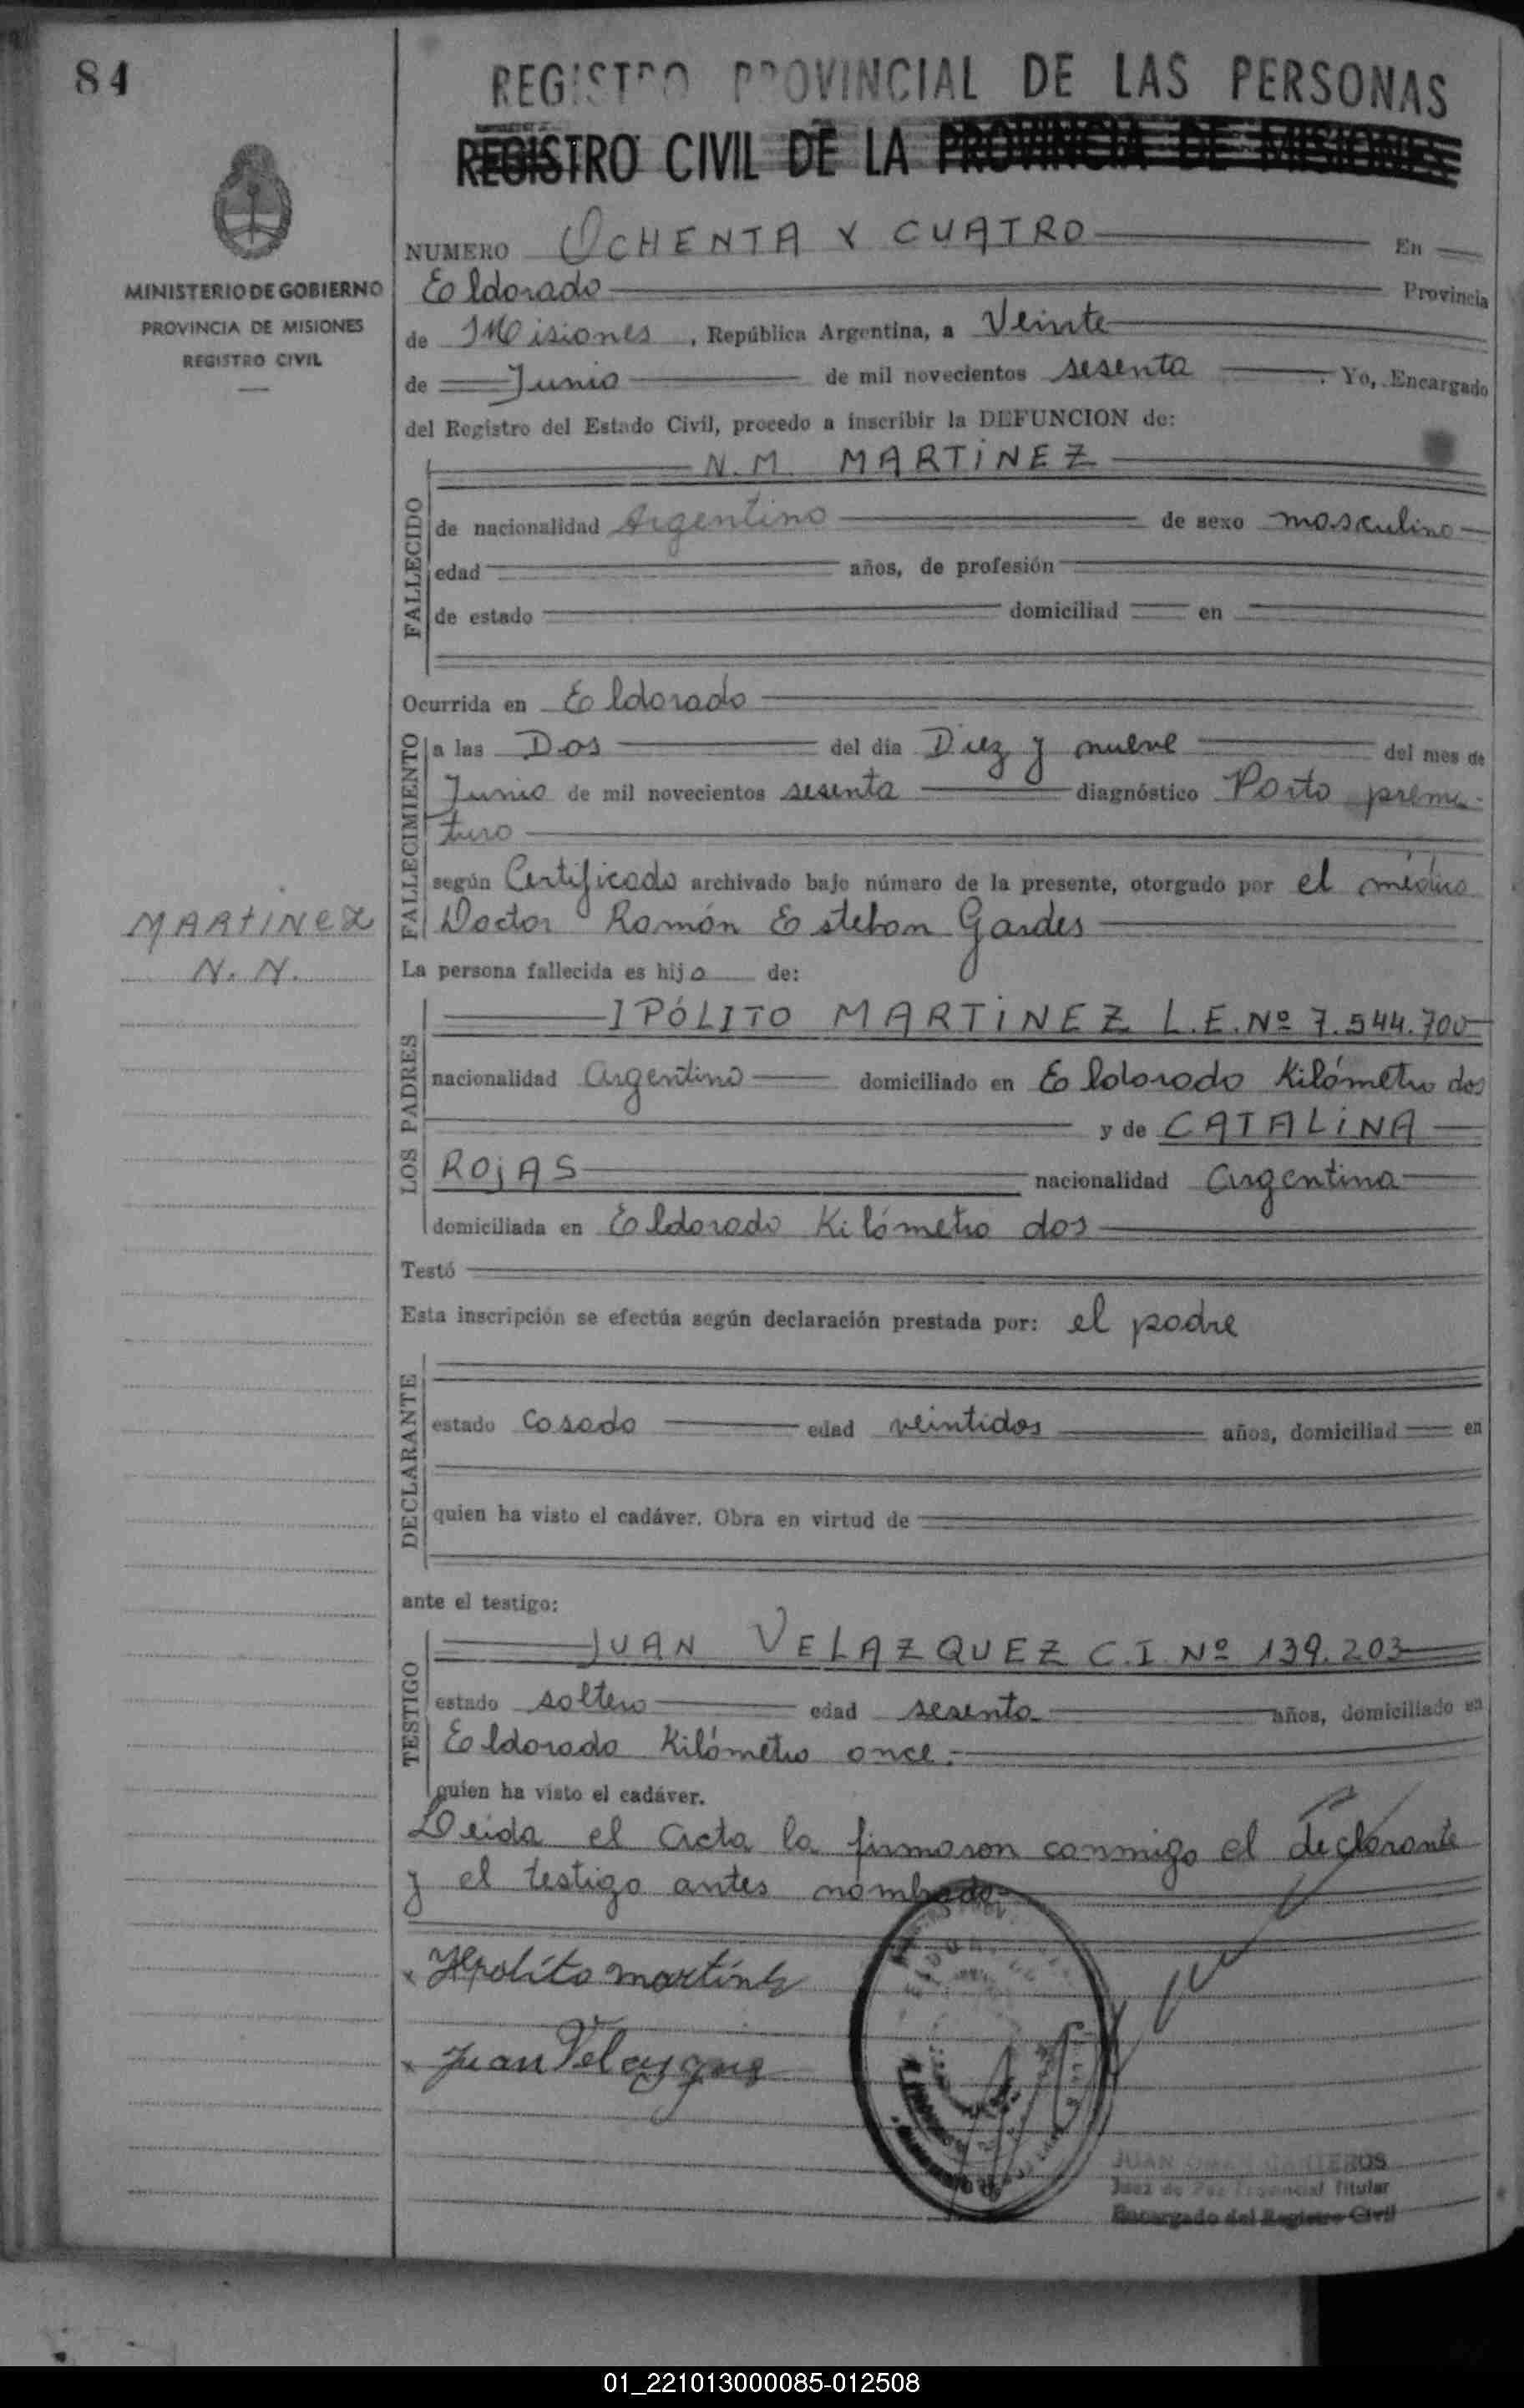 84
REGISTRO PROVINCIAL DE LAS PERSONAS
REGISTRO CIVIL DE LA PROVINCIA DE MISIONES
MINISTERIO DE GOBIERNO
PROVINCIA DE MISIONES
REGISTRO CIVIL
NUMERO OCHENTA Y CUATRO En
Eldorado Provincia
de Misiones, República Argentina, a Veinte
de Junio de mil novecientos sesenta. Yo, Encargado
del Registro del Estado Civil, procedo a inscribir la DEFUNCION de:
FALLECIDO
N.M. MARTINEZ
de nacionalidad Argentino de sexo masculino
edad años, de profesión
de estado domiciliad en
Ocurrida en Eldorado
FALLECIMIENTO
a las Dos del día Diez y nueve del mes de
Junio de mil novecientos sesenta diagnóstico Parto prema-
turo
según Certificado archivado bajo número de la presente, otorgado por el médico
Doctor Ramón Esteban Gardes
MARTINEZ
N. N.
La persona fallecida es hijo de:
LOS PADRES
IPÓLITO MARTINEZ L.E. Nº 7.544.700
nacionalidad argentino domiciliado en Eldorado Kilómetro dos
y de CATALINA
ROJAS nacionalidad argentina
domiciliada en Eldorado Kilómetro dos
Testó
Esta inscripción se efectúa según declaración prestada por: el padre
DECLARANTE
estado casado edad veintidos años, domiciliad en
quien ha visto el cadáver. Obra en virtud de
ante el testigo:
TESTIGO
JUAN VELAZQUEZ C.I. Nº 139.203
estado soltero edad sesenta años, domiciliado en
Eldorado Kilómetro once.-
quien ha visto el cadáver.
Leida el acta la firmaron conmigo el declarante
y el testigo antes nombrado-
x Ipolito martinez
x Juan Velazquez
JUAN OMAR
Juez de Paz Provincial Titular
Encargado del Registro Civil
01_221013000085-012508